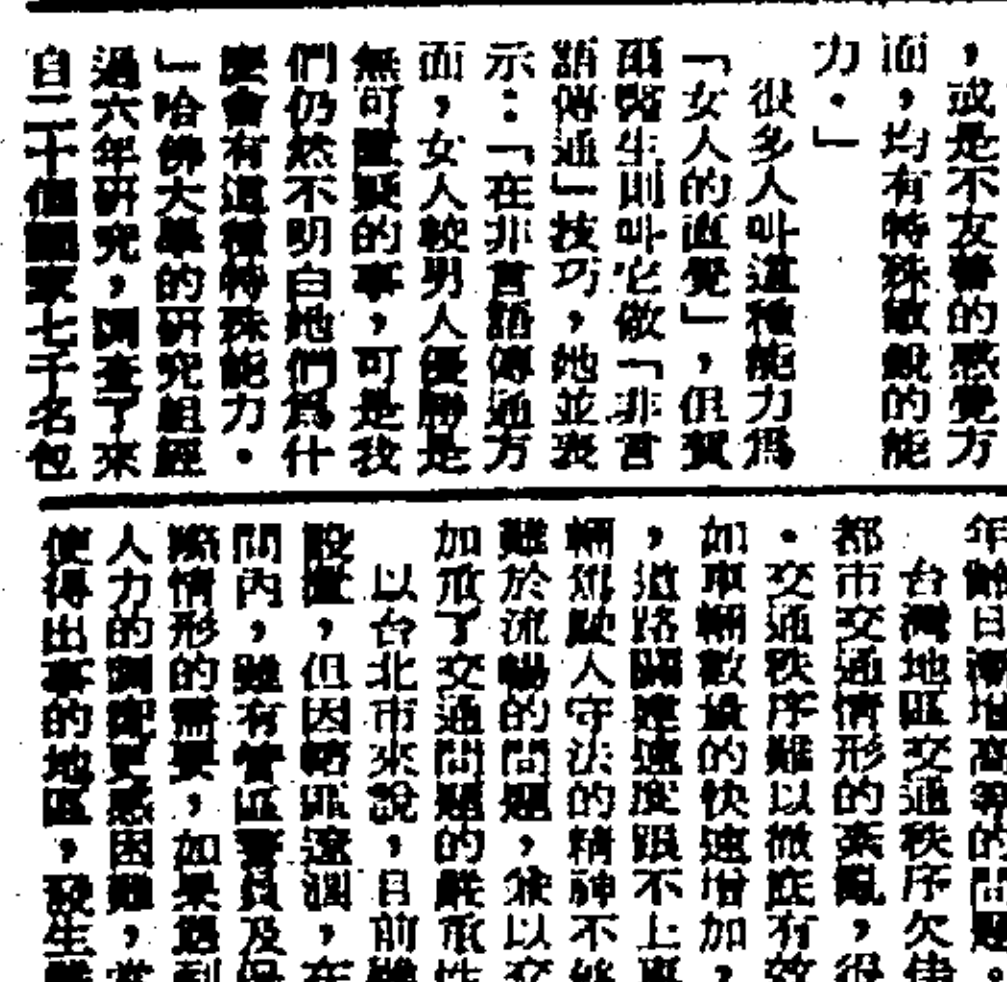 ，或是不友善的感覺方
面，均有特殊敏銳的能
力。」
很多人叫這種能力為
「女人的直覺」，但賀
爾醫生則叫它做「非言
語傳通」技巧，她並表
示：「在非言語傳通方
面，女人較男人優勝是
無可置疑的事，可是我
們仍然不明白她們爲什
麼會有這種特殊能力。
」哈佛大學的研究組經
過六年研究，調查了來
自二十個國家七千名包
年齡日漸增高等的問題。
台灣地區交通秩序欠佳
都市交通情形的紊亂，很
。交通秩序難以徹底有效
如車輛數量的快速增加，
，道路闢建速度跟不上車
輛駕駛人守法的精神不夠
難於流暢的問題，兼以交
加重了交通問題的嚴重性
以台北市來說，目前雖
設置，但因轄區遼濶，在
間內，雖有管區警員及
際情形的需要，如果遇到
人力的調配更感困難，常
使得出事的地區，發生嚴